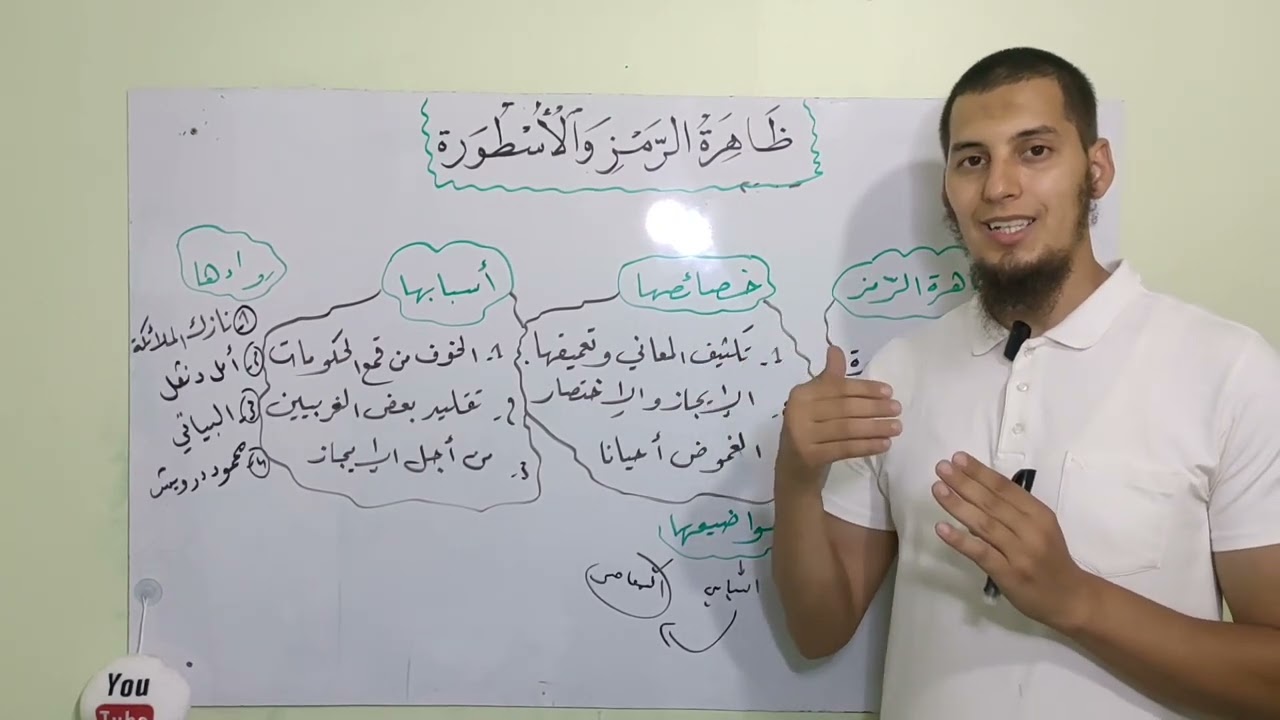 ظَاهِرَةُ الرَّمْزِ وَالْأُسْطُورَة
هرة الرّمز
ة
خصائصها
1. تكثيف المعاني وتعميقها.
الإيجاز والإختصار
الغموض أحيانا
أسبابها
1. الخوف من قمع الحكومات
2. تقليد بعض الغربيين
3. من أجل الإيجاز
روادها
1 نازك الملائكة
2 أمل دنقل
3 البياتي
4 محمود درويش
واضيعها
You
Tube